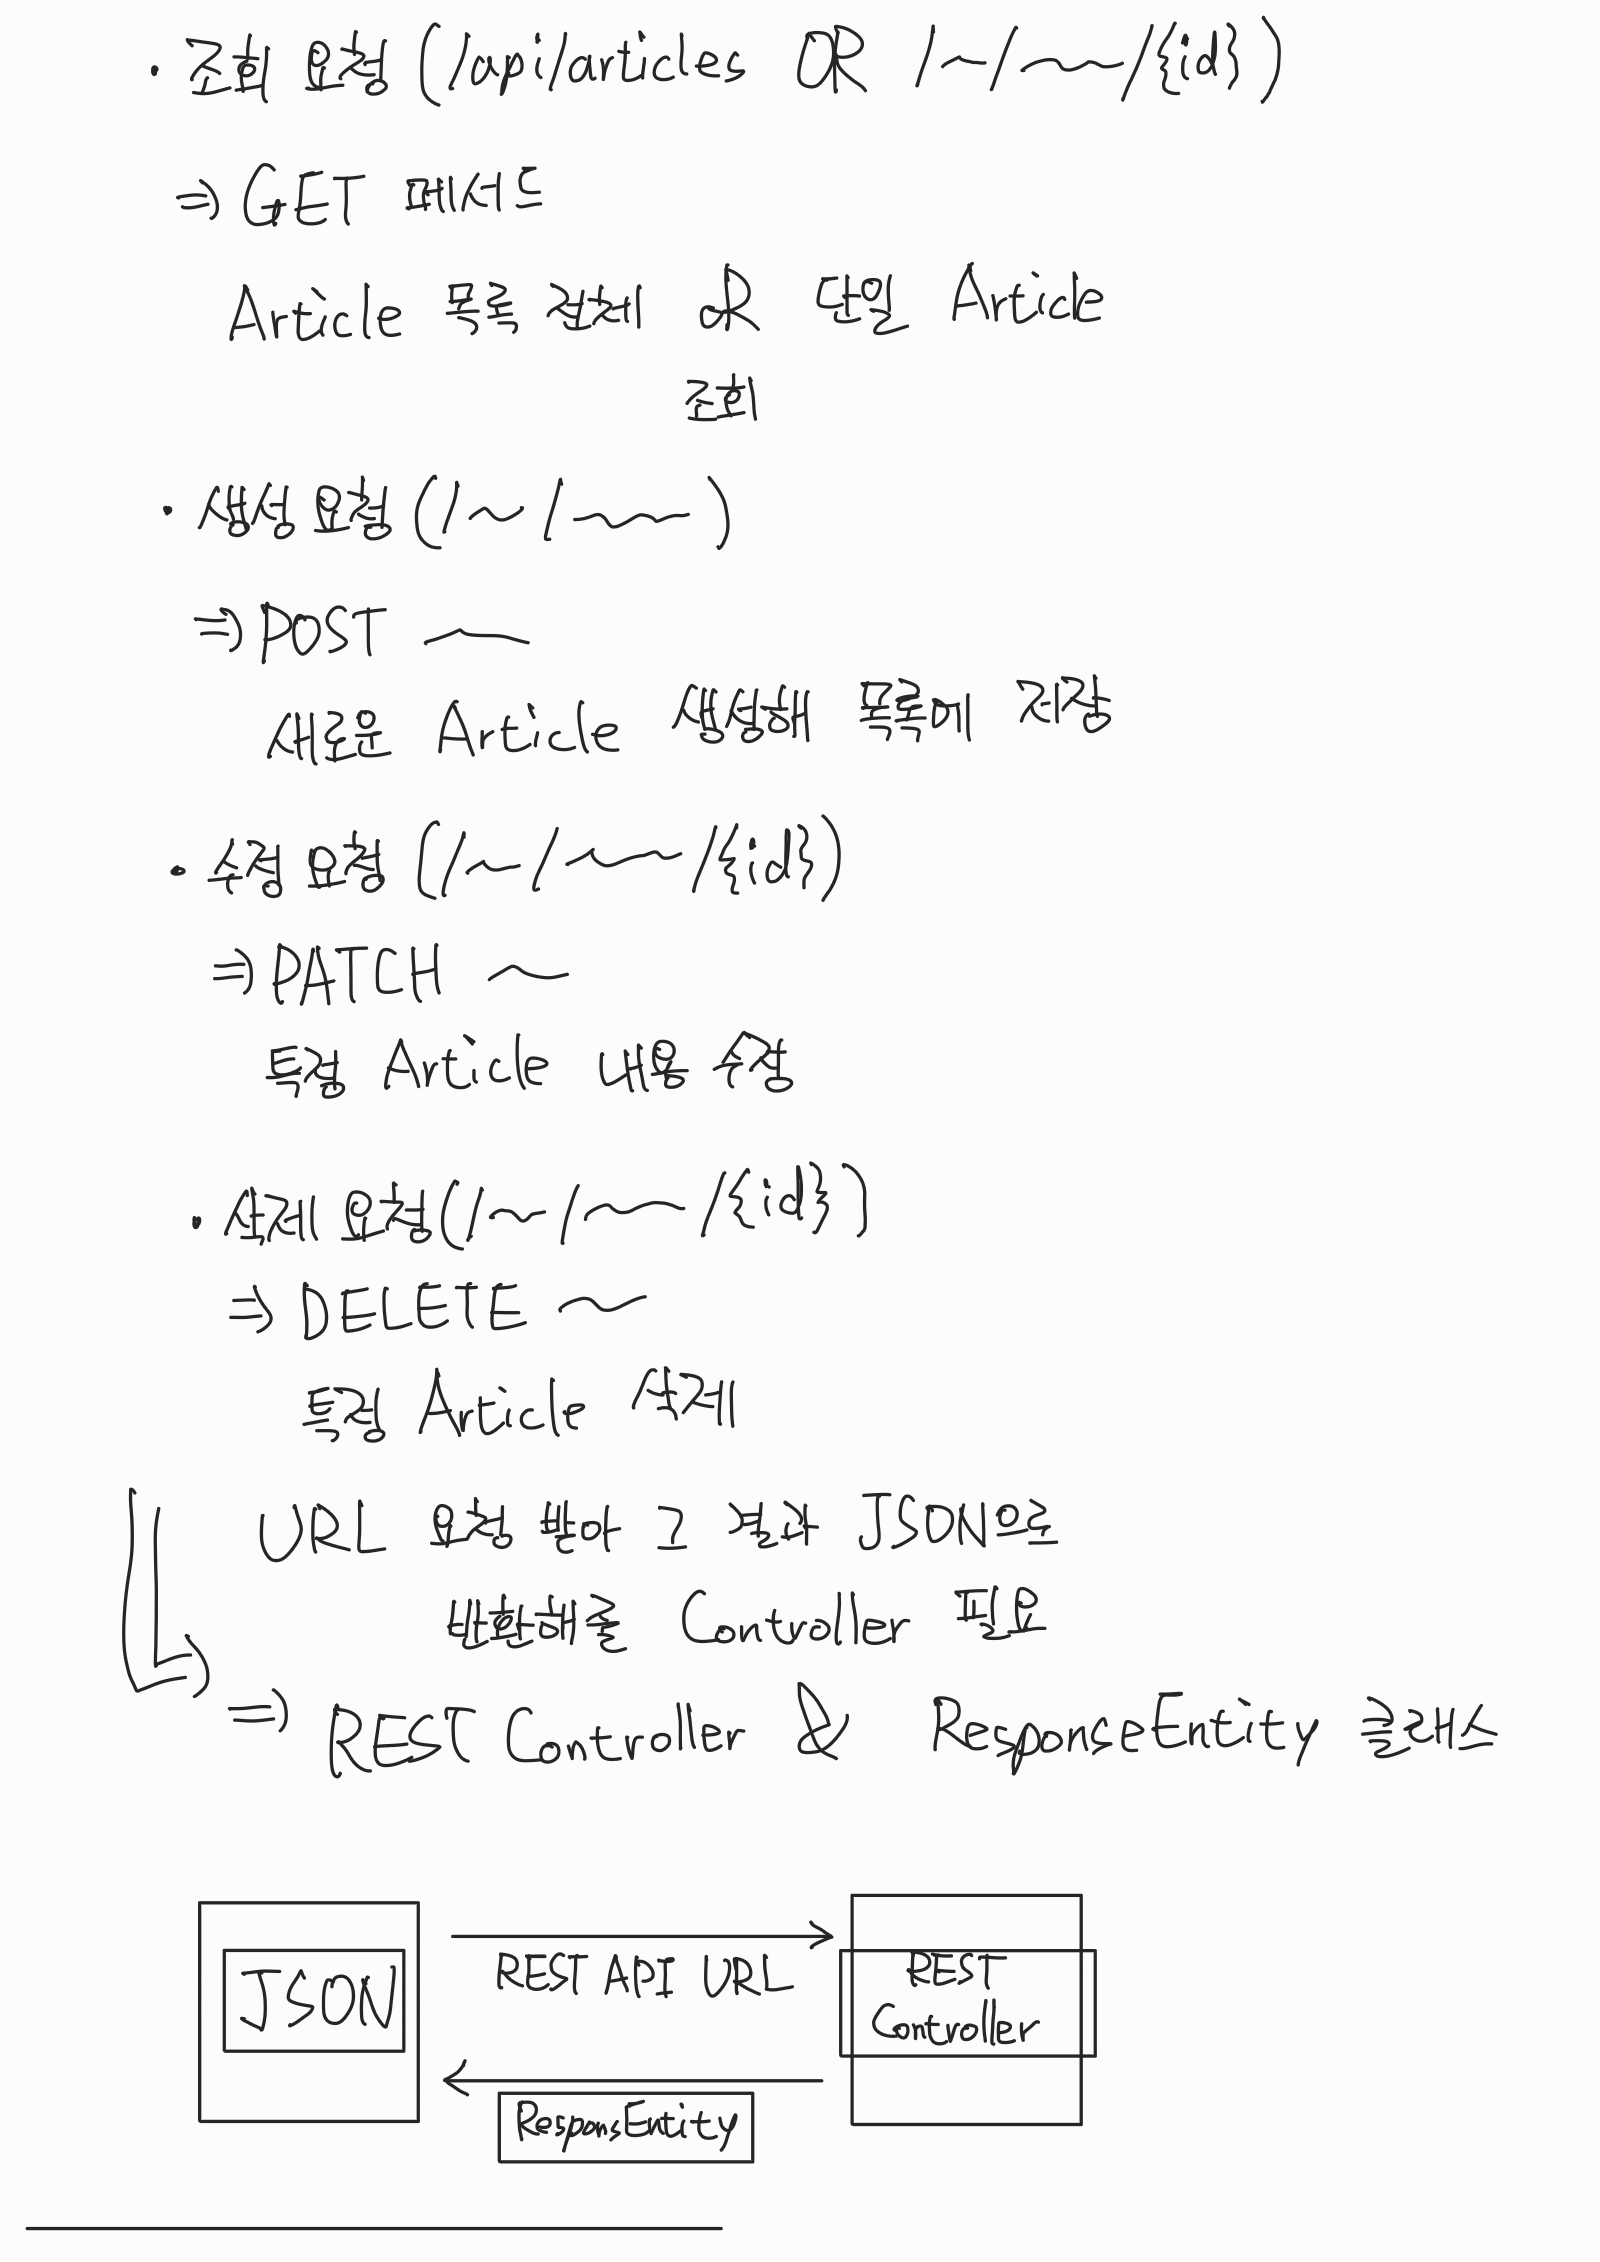 · 조회 요청 (/api/articles OR /~/~/{id})
⇒ GET 메서드
Article 목록 전체 OR 단일 Article
조회
· 생성 요청 (/~/~)
⇒ POST ~
새로운 Article 생성해 목록에 저장
· 수정 요청 (/~/~/{id})
⇒ PATCH ~
특정 Article 내용 수정
· 삭제 요청(/~/~/{id})
⇒ DELETE ~
특정 Article 삭제
URL 요청 받아 그 결과 JSON으로
반환해줄 Controller 필요
⇒ REST Controller & ResponseEntity 클래스
JSON
REST API URL
REST
Controller
ResponsEntity